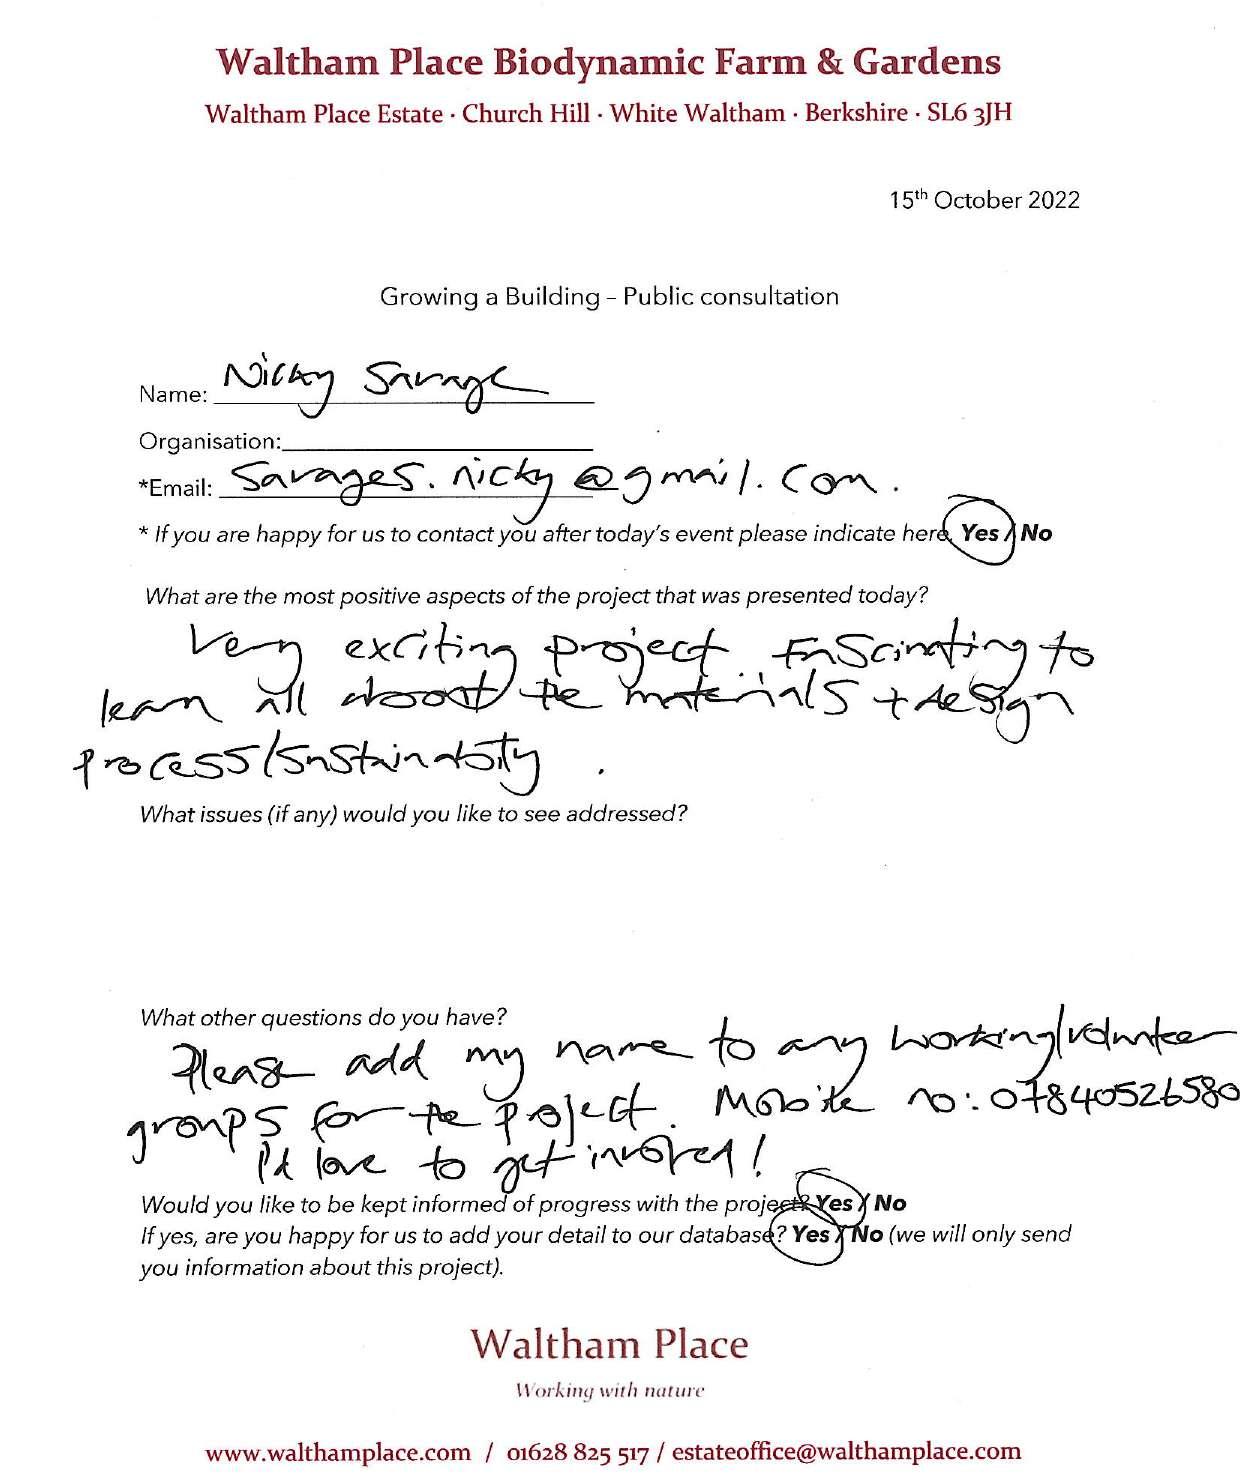 Waltham Place Biodynamic Farm & Gardens
Waltham Place Estate · Church Hill · White Waltham · Berkshire · SL6 3JH
15th October 2022
Growing a Building – Public consultation
Name: Nicky Savage
Organisation:
*Email: Savages.nicky@gmail.com.
* If you are happy for us to contact you after today's event please indicate here. Yes / No
What are the most positive aspects of the project that was presented today?
Very exciting project. Fascinating to
learn all about the materials + design
process/sustainability.
What issues (if any) would you like to see addressed?
What other questions do you have?
Please add my name to any working/volunteer
groups for the project. Mobile no: 07840526580
I'd love to get involved!
Would you like to be kept informed of progress with the project? Yes / No
If yes, are you happy for us to add your detail to our database? Yes / No (we will only send
you information about this project).
Waltham Place
Working with nature
www.walthamplace.com / 01628 825 517 / estateoffice@walthamplace.com